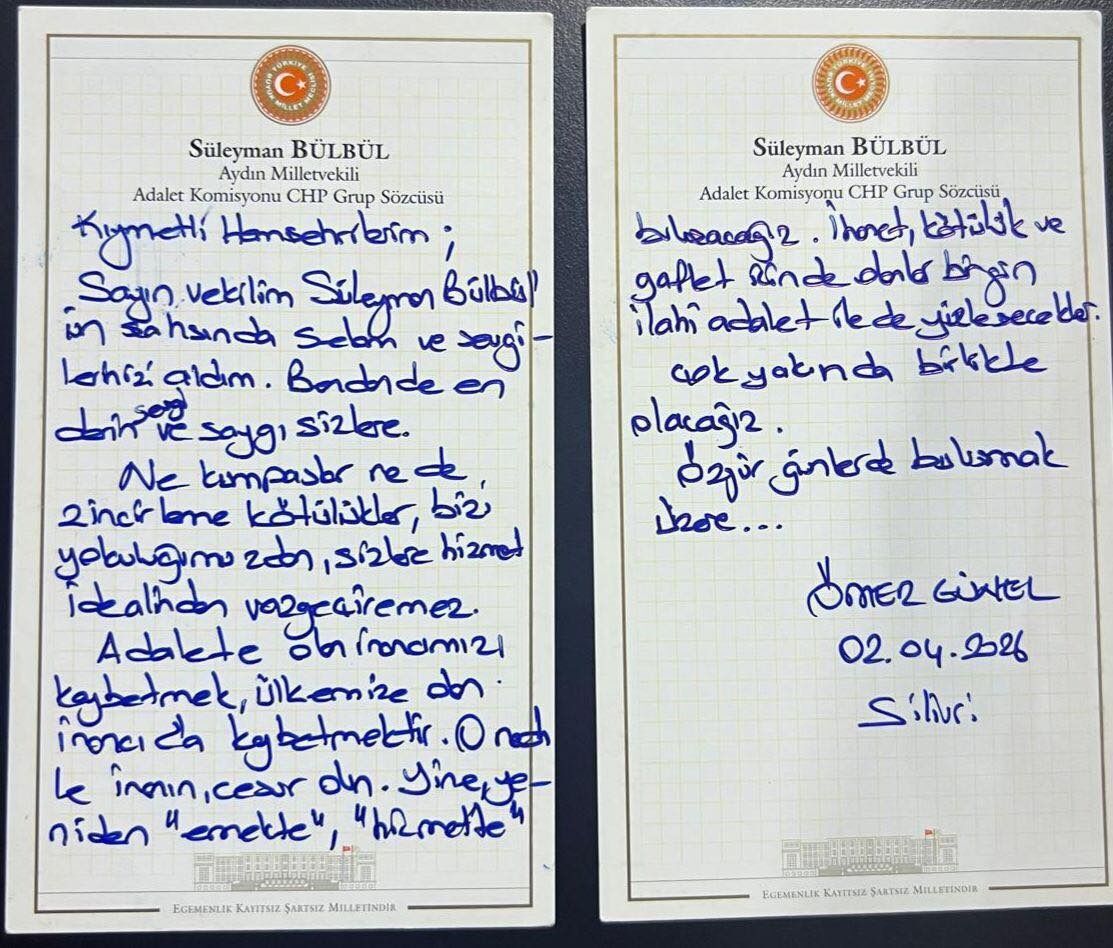 TÜRKİYE BÜYÜK MİLLET MECLİSİ
Süleyman BÜLBÜL
Aydın Milletvekili
Adalet Komisyonu CHP Grup Sözcüsü
Kıymetli Hemşehrilerim;
Sayın vekilim Süleyman Bülbül'
ün şahsında selam ve sevgi-
lerinizi aldım. Benden de en
derin sevgi ve saygı sizlere.
Ne kumpaslar ne de,
zincirleme kötülükler, bizi
yolculuğumuzdan, sizlere hizmet
idealinden vazgeçiremez.
Adalete olan inancımızı
kaybetmek, ülkemize olan
inancı da kaybetmektir. O neden-
le inanın, cesur olun. Yine, ye-
niden "emekte", "hizmette"
EGEMENLİK KAYITSIZ ŞARTSIZ MİLLETİNDİR
TÜRKİYE BÜYÜK MİLLET MECLİSİ
Süleyman BÜLBÜL
Aydın Milletvekili
Adalet Komisyonu CHP Grup Sözcüsü
buluşacağız. İhanet, kötülük ve
gaflet içinde olanlar bir gün
ilahi adalet ile de yüzleşecekler.
Çok yakında birlikte
olacağız.
Özgür günlerde buluşmak
üzere...
ÖMER GÜNEL
02.04.2026
Silivri
EGEMENLİK KAYITSIZ ŞARTSIZ MİLLETİNDİR